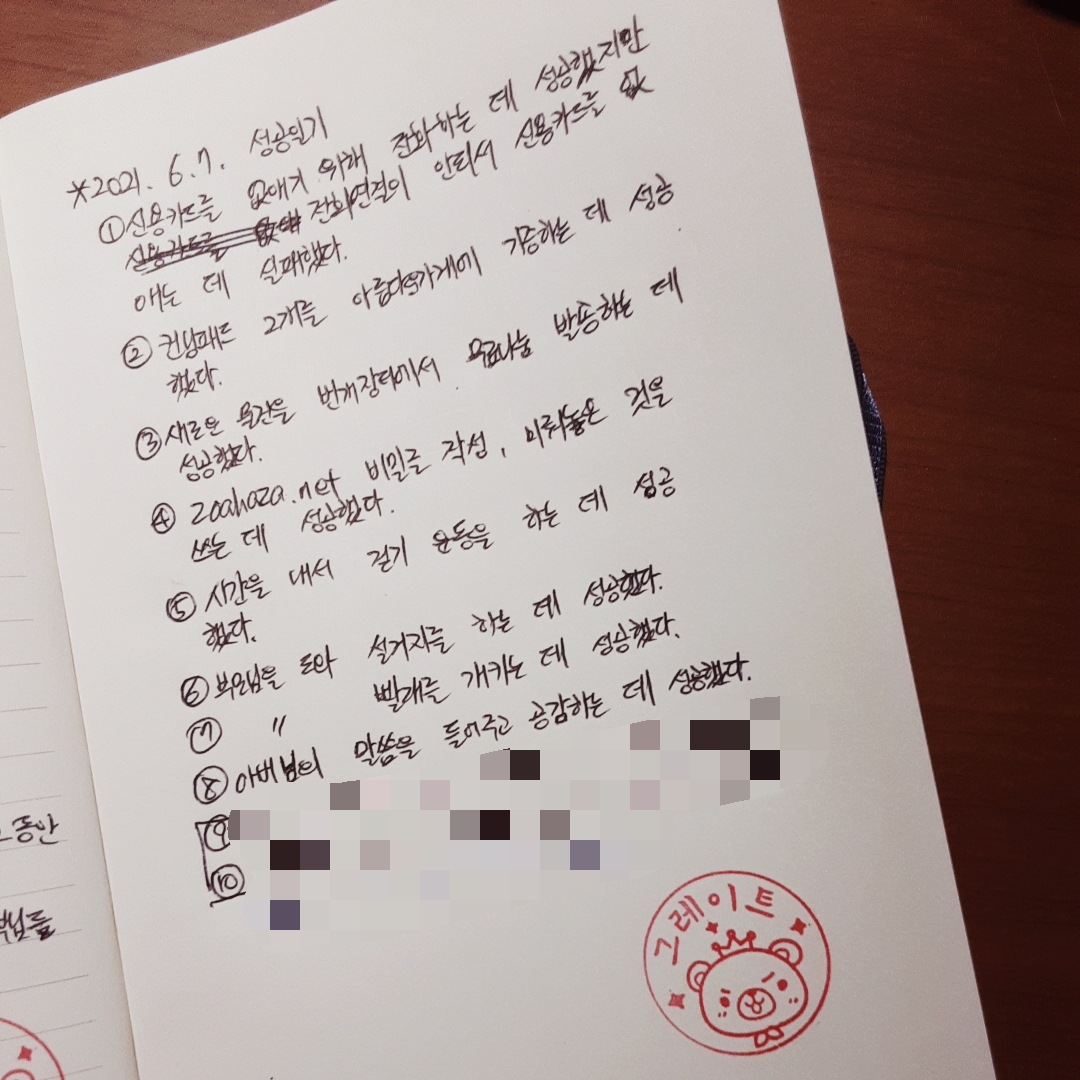 *2021. 6. 7. 성공일기
① 신용카드를 없애기 위해 전화하는 데 성공했지만
신용카드를 전화연결이 안되서 신용카드를 없
애는 데 실패했다.
② 컨닝패드 2개를 아름다운가게에 기증하는 데 성공
했다.
③ 새로운 물건을 번개장터에서 무료나눔 발송하는 데
성공했다.
④ zoahaza.net 비밀글 작성, 미뤄놓은 것을
쓰는 데 성공했다.
⑤ 시간을 내서 걷기 운동을 하는 데 성공
했다.
⑥ 부모님을 도와 설거지를 하는 데 성공했다.
⑦ 〃 빨래를 개키는 데 성공했다.
⑧ 아버님의 말씀을 들어주고 공감하는 데 성공했다.
⑨
⑩
그레이트
동안
님들